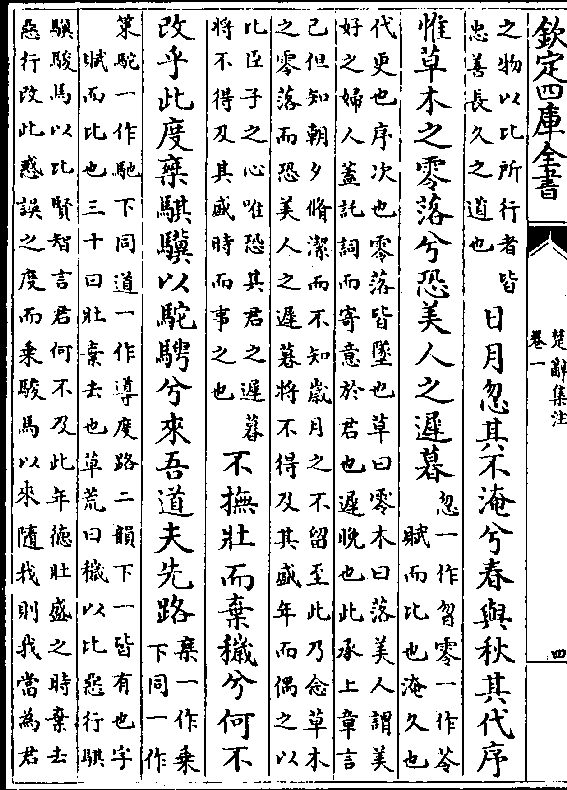 欽定四庫全書
楚辭集注
卷一
四
之物以比所行者皆
忠善長久之道也
日月忽其不淹兮春與秋其代序
惟草木之零落兮恐美人之遲暮
忽一作曶零一作苓
賦而比也淹久也
代更也序次也零落皆墜也草曰零木曰落美人謂美
好之婦人蓋託詞而寄意於君也遲晚也此承上章言
己但知朝夕脩潔而不知歲月之不留至此乃念草木
之零落而恐美人之遲暮將不得及其盛年而偶之以
比臣子之心唯恐其君之遲暮
將不得及其盛時而事之也
不撫壯而棄穢兮何不
改乎此度椉騏驥以駝騁兮來吾道夫先路
椉一作乗
下同一作
策駝一作馳下同道一作導度路二韻下一皆有也字
賦而比也三十曰壯棄去也草荒曰穢以比惡行騏
驥駿馬以比賢智言君何不及此年德壯盛之時棄去
惡行改此惑誤之度而乗駿馬以來隨我則我當為君